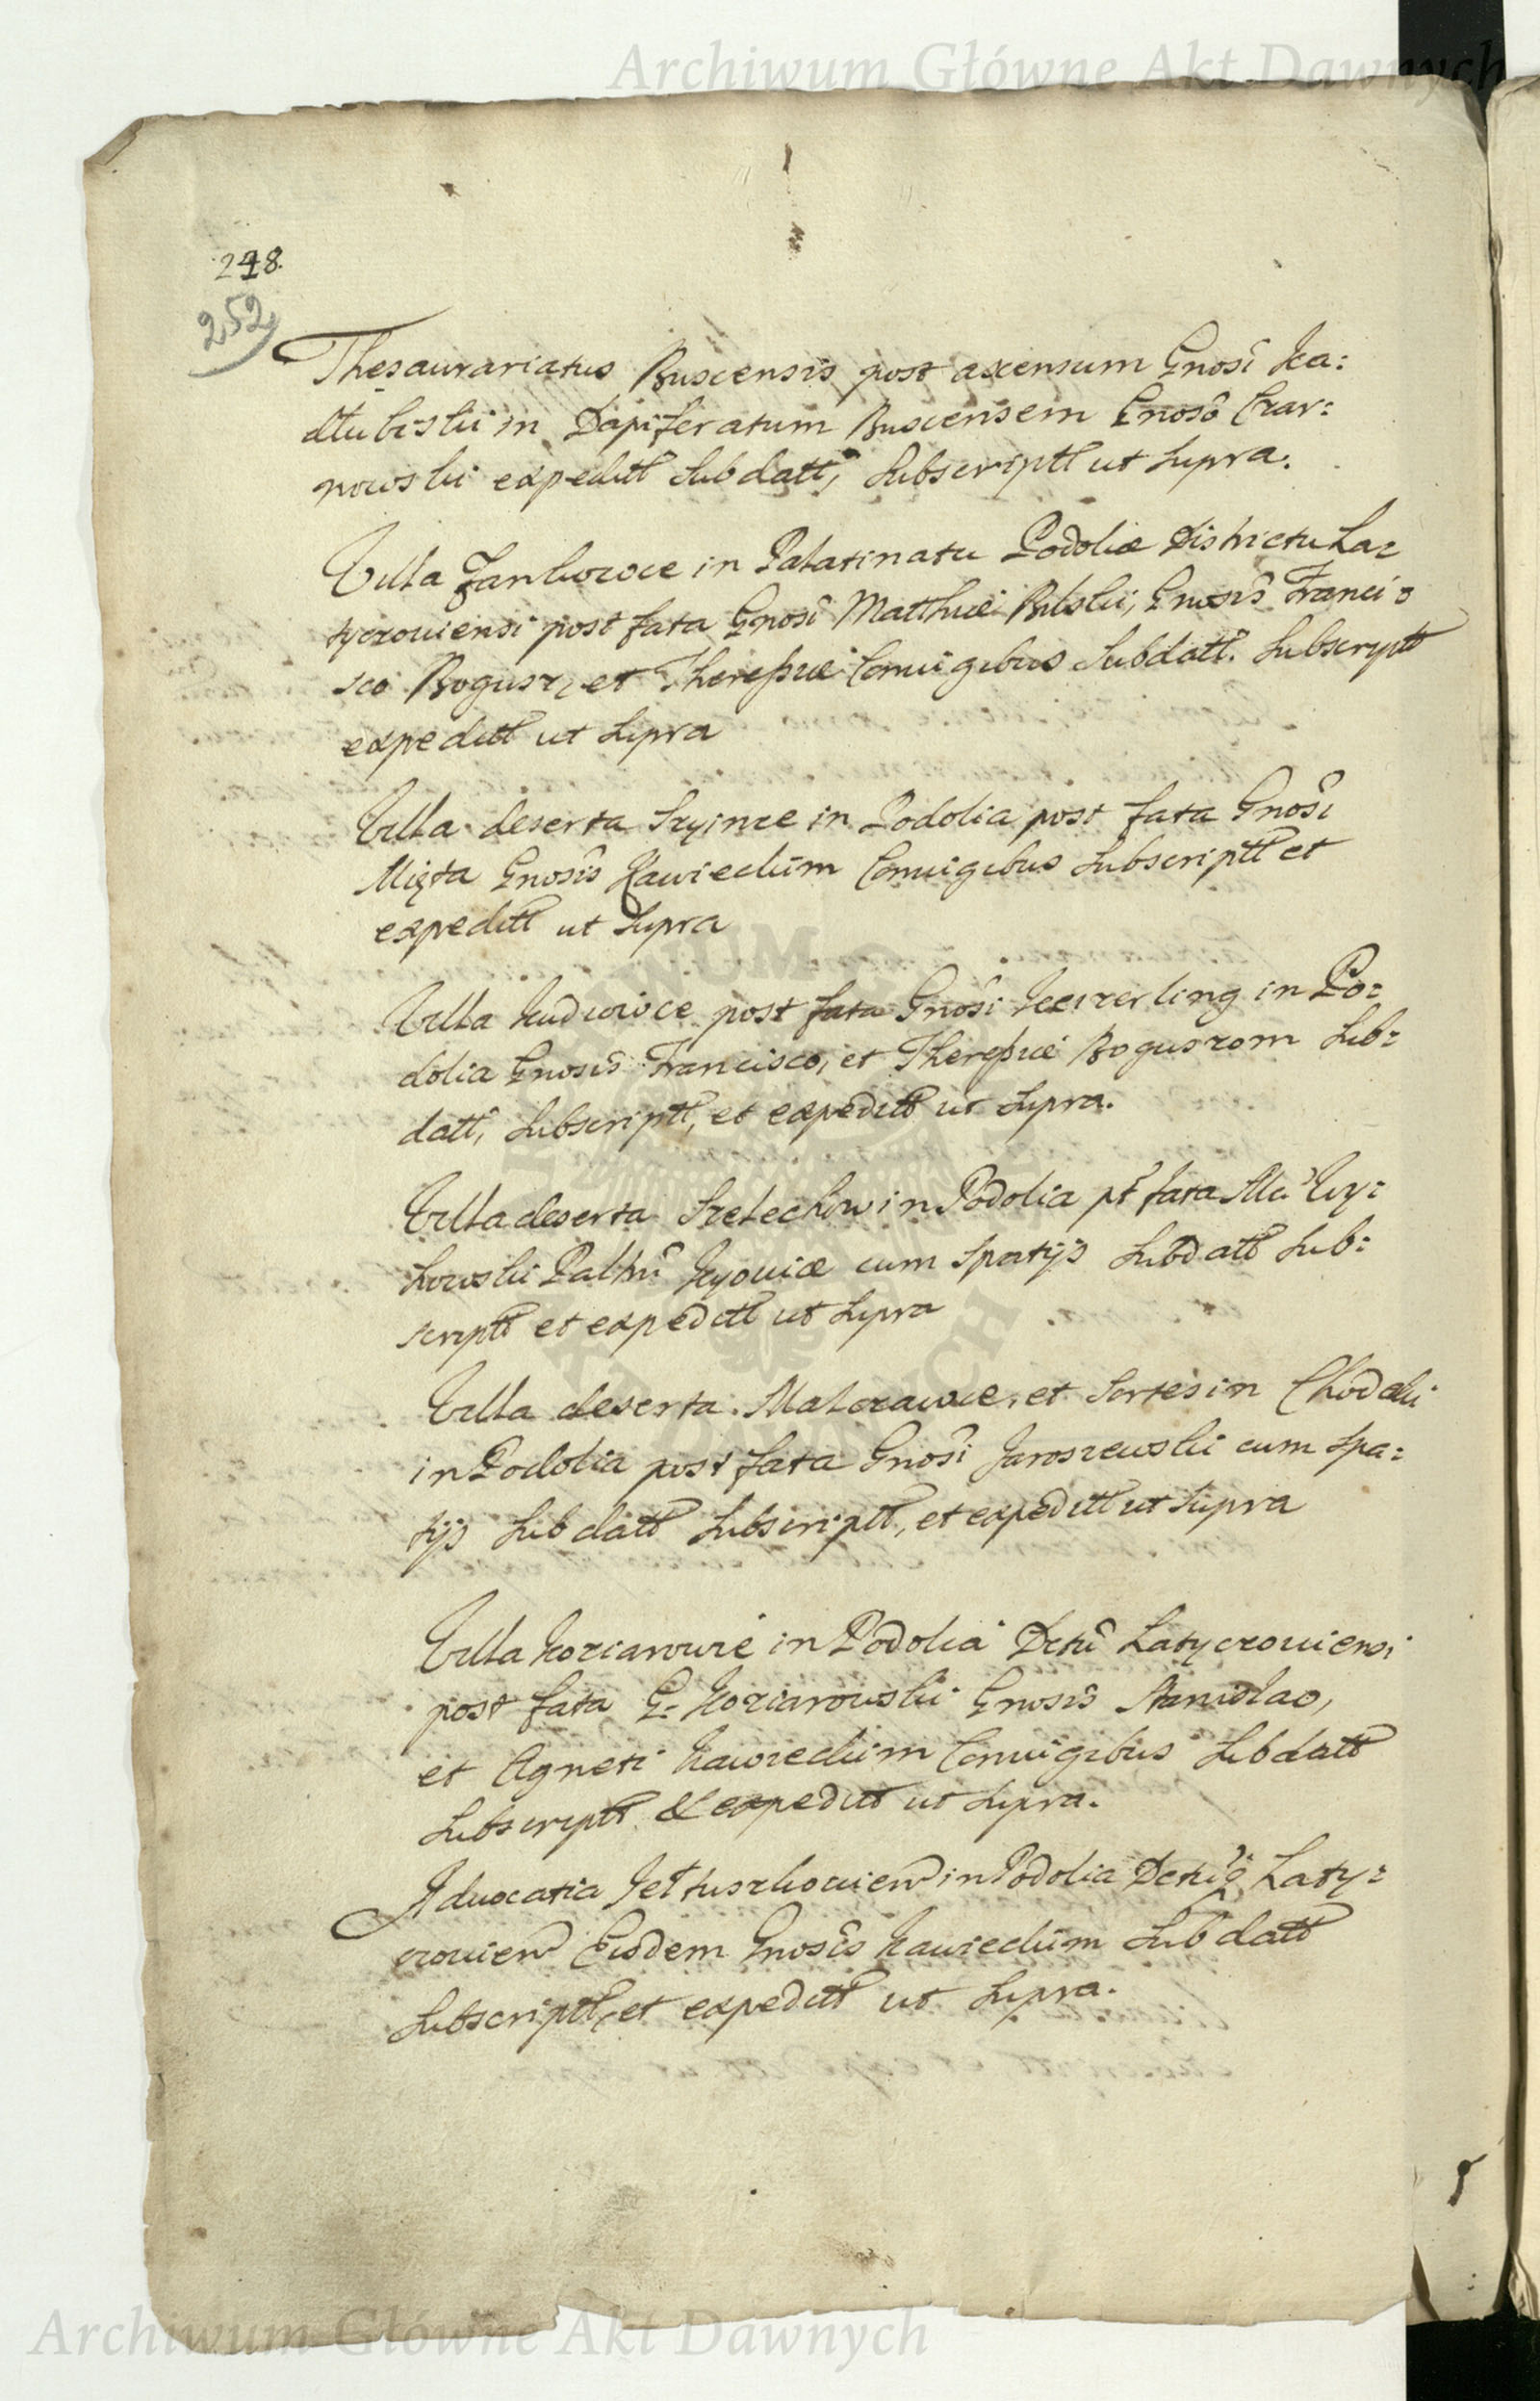 Archiwum Główne Akt Dawnych
248.
252
Thesaurariatus Buscensis post ascensum Gnosi Ka:
dłubiski in Dapiferatum Buscensem Gnoso Czar:
nowski expeditt Subdatt, Subscriptt ut Supra.
Villa Jankowce in Palatinatu Podoliæ Districtu La:
tyczoviensi post fata Gnosi Matthæi Bilski, Gnosis Franci:
sco Bogusz, et Theresiæ Conjugibus Subdatt. Subscriptt
expeditt ut Supra
Villa deserta in Podolia post fata Gnosi
Mięta Gnosis Kawieckim Conjugibus Subscriptt et
expeditt ut Supra
Villa post fata Gnosi Keizerling in Po:
dolia Gnosis Francisco, et Theresiæ Boguszom Sub:
datt, Subscriptt, et expeditt ut Supra.
Villa deserta Szelechow in Podolia pt fata
howski Palni Kyoviæ cum Spatijs Subdatt Sub:
scriptt et expeditt ut Supra
Villa deserta et Sortes in
in Podolia post fata Gnosi Jaroszewski cum Spa:
tijs Subdatt Subscriptt, et expeditt ut Supra
Villa Koziarowce in Podolia Dctu Latyczoviensi
post fata G: Koziarowski Gnosis Stanislao,
et Agneti Kawieckim Conjugibus Subdatt
Subscriptt & expeditt ut Supra.
Advocatia in Podolia Laty:
czovien Eisdem Gnosis Kawieckim Subdatt
Subscriptt, et expeditt ut Supra.
Archiwum Główne Akt Dawnych